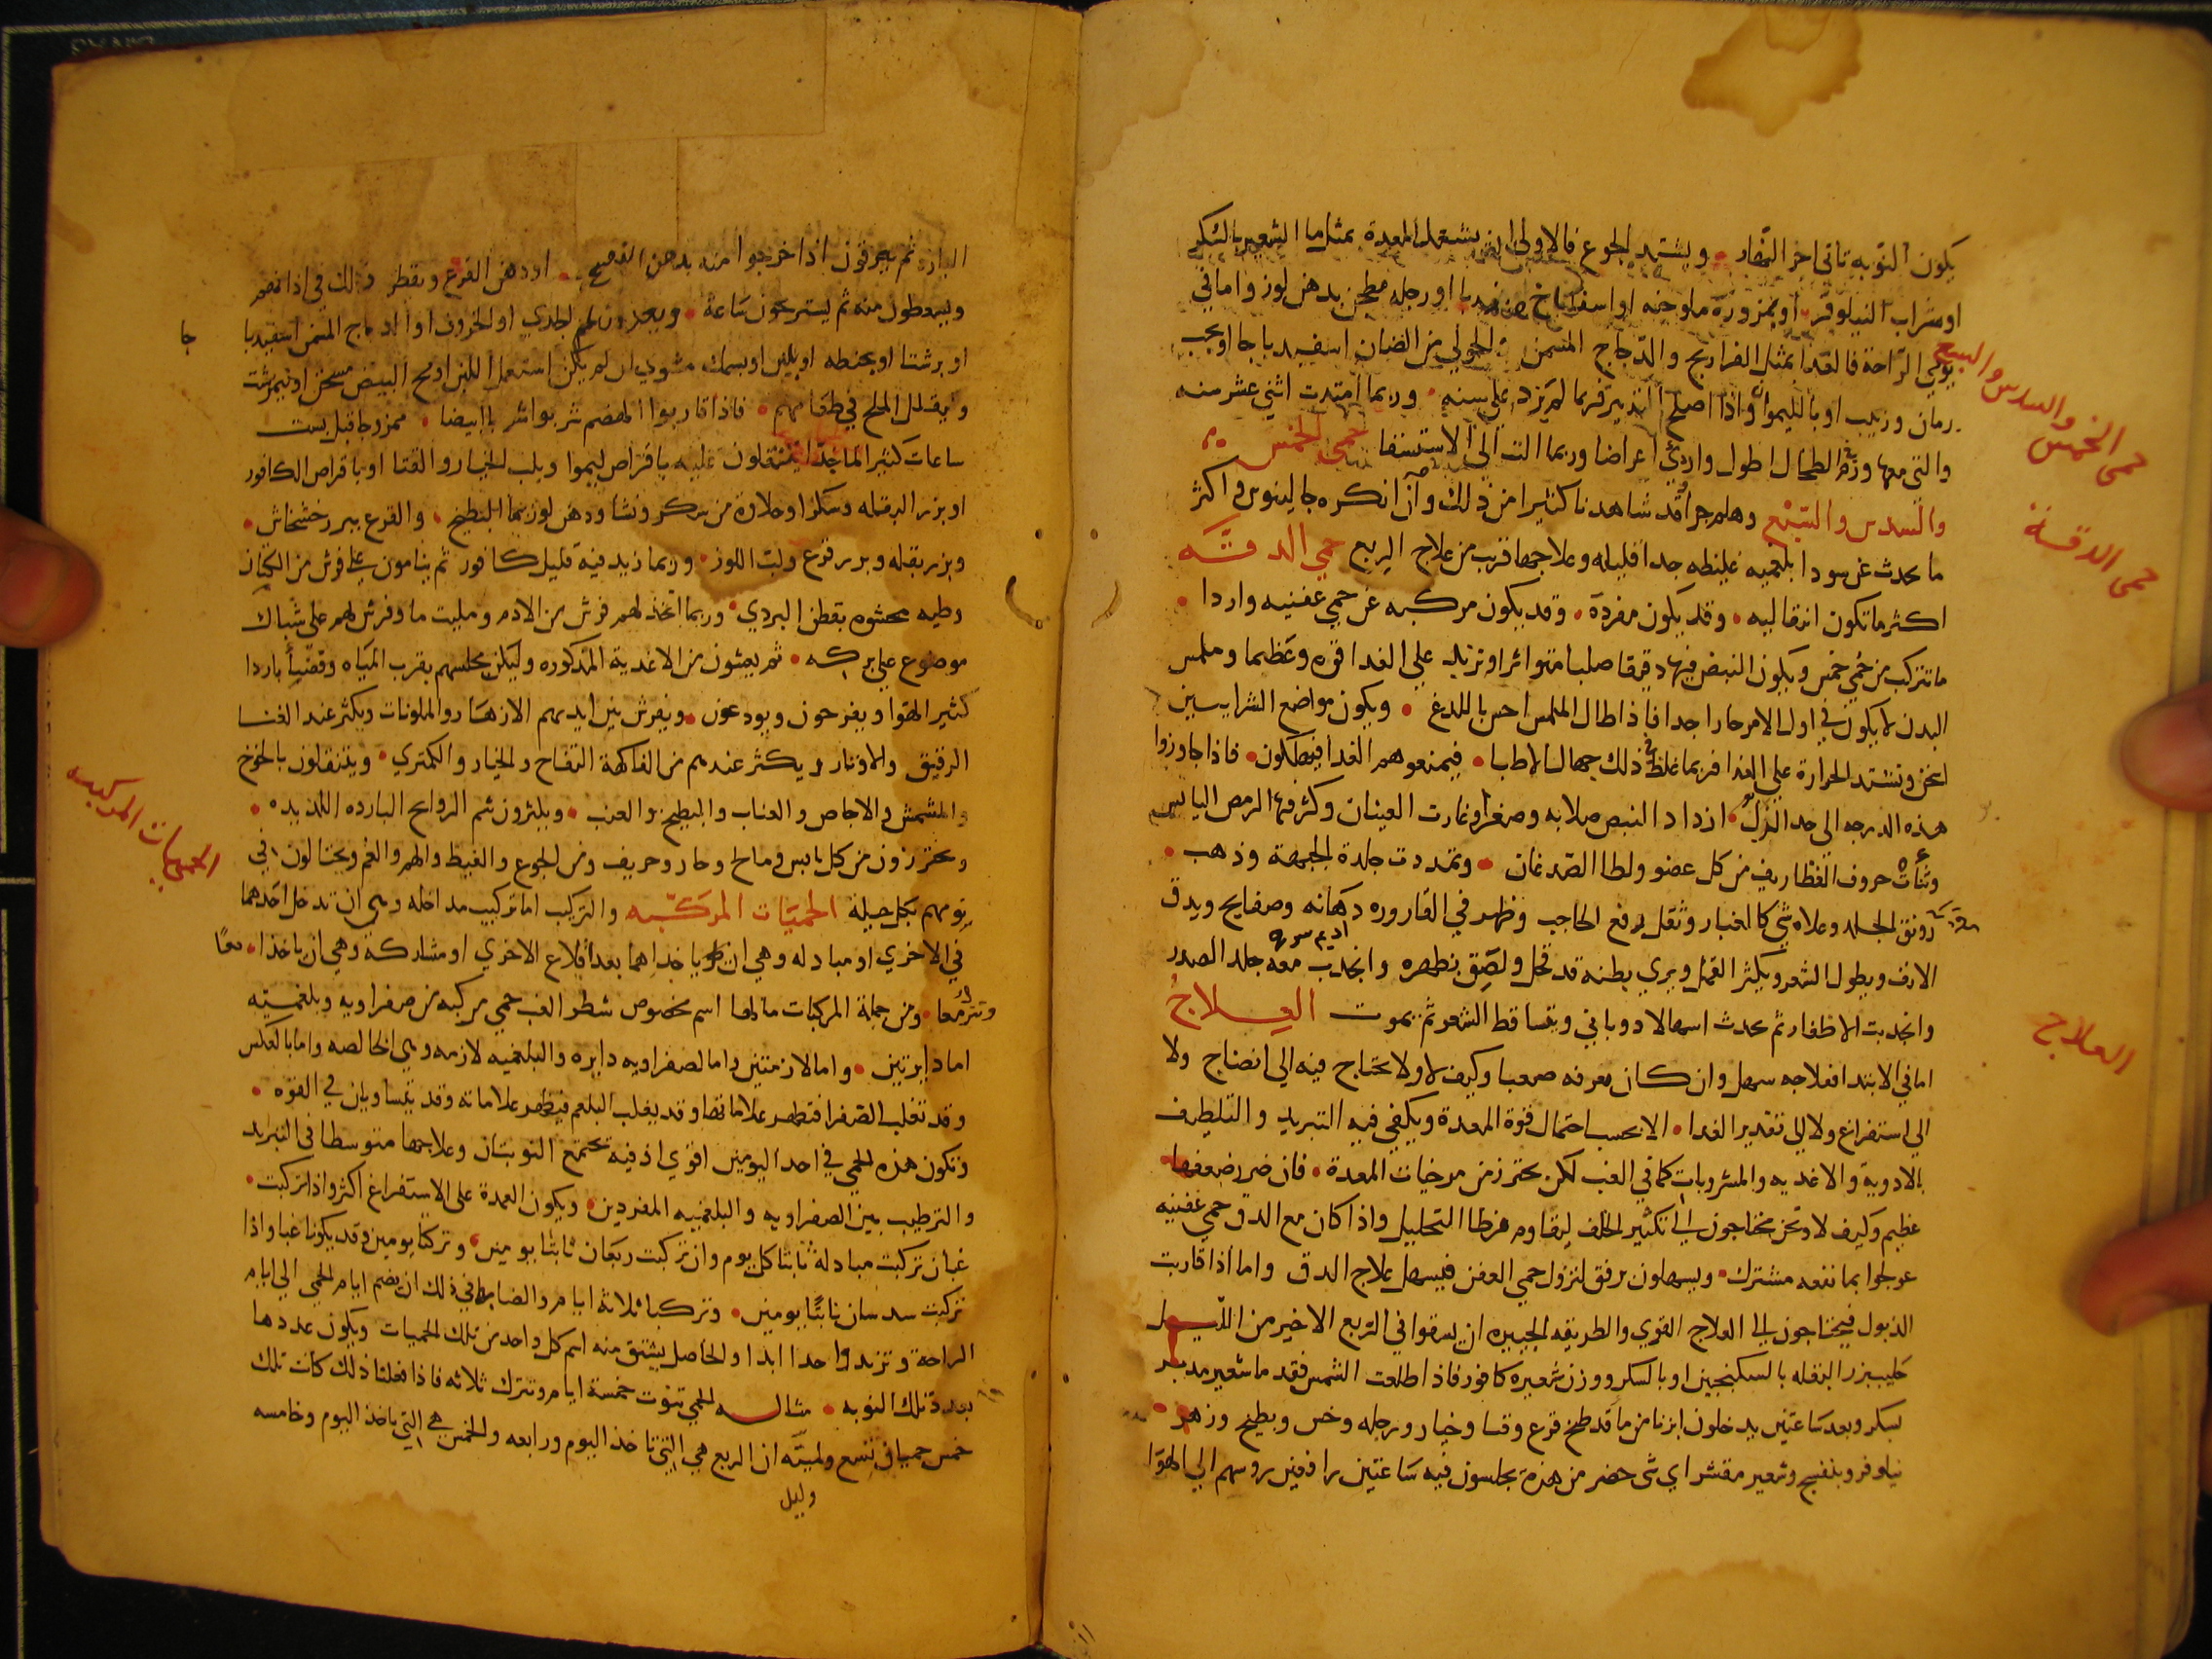 يكون النوبه تاتى اخر النهار ويشتد الجوع فالاولى ان يشتغل المعدة بمثل ما الشعير بالسكر
او شراب النيلوفر او بمزورة ملوخيه او اسفاناخ او رجله مطجن بدهن لوز واما في
يومي الراحة فالغدا بمثل الفراريج والدجاج المسمن الحولي من الضان اسفيدباجا او بحب
رمان وزبيب او بالليموا واذا اصلح التدبير فربما لم يزد على سنه وربما امتدت اثني عشر سنه
والتي معها ورم الطحال اطول واردئ اعراضا وربما الت الى الاستسقا حمى الخمس
والسدس والسبع وهلم جرا قد شاهدنا كثيرا من ذلك وان انكره جالينوس واكثر
ما يحدث عن سودا بلغميه غليظه جدا قليله وعلاجها قريب من علاج الربع حمى الدق
اكثر ما تكون انتقاليه وقد يكون مفردة وقد يكون مركبه عن حمى عفنيه واردا
ما تتركب من حمى خمس ويكون النبض فيها دقيقا صلبا متواترا وتزيد على الغدا قوه وعظما وملمس
البدن لا يكون في اول الامر حارا جدا فاذا طال الملمس احس باللدغ ويكون مواضع الشرايين
اسخن وتشتد الحرارة على الغدا فربما غلط في ذلك جهال الاطبا فيمنعوهم الغدا فيهلكون فاذا جاوزوا
هذه الدرجه الى حد الذبول ازداد النبض صلابه وصغرا وغارت العينان وكثر فيها الرمص اليابس
ونتات حروف الغظاريف من كل عضو ولطا الصدغان وتمددت جلدة الجبهة وذهب
رونق الجلد وعلاه شي كالغبار وثقل رفع الحاجب وظهر في القاروره دهانه وصفايح ويدق
الانف ويطول الشعر ويكثر القمل ويرى بطنه قد قحل ولصق بظهره وانجذب معه جلد الصدر
وانجذبت الاظفار ثم يحدث اسهالا دوباني ويتساقط الشعر ثم يموت العلاج
اما في الابتدا فعلاجه سهل وان كان معرفه صعبا وكيف لا ولا يحتاج فيه الى انضاج ولا
الى استفراغ ولا الى تقدير الغدا الا بحسب احتمال قوة المعدة ويكفي فيه التبريد والترطيب
بالادوية والاغديه والمشروبات كما في الغب لكن يحترز من مرخيات المعدة فان ضرر ضعفها
عظيم وكيف لا ونحن نحتاجون الى تكثير الخلف ليقاوم فرط التحليل واذا كان مع الدق حمى عفنيه
عولجوا بما نفعه مشترك ويسهلون برفق لتزول حمى العفن فيسهل علاج الدق واما اذا قاربت
الذبول فيحتاجون الى العلاج القوي والطريقه الجيده ان يسقوا في الربع الاخير من الليل
حليب بزر البقله بالسكنجبين او بالسكر ووزن شعيره كافور فاذا طلعت الشمس فقد ما شعير مدبر
بسكر وبعد ساعتين يدخلون ابزنا من ما قد طبخ قرع وقثا وخيار ورجله وخس وبطيخ وزهر
نيلوفر وبنفسج وشعير مقشر اي شي حضر من هذه يجلسون فيه ساعتين رافعين روسهم الى الهوا
حمى الخمس والسدس والسبع
حمى الدقية
العلاج
البارد ثم يعرقون اذا خرجوا منه بدهن البنفسج او دهن القرع ويقطر ذلك في اذانهم
ويسعطون منه ثم يستريحون ساعة ويغدون بلحم الجدي او الخروف او الدجاج المسمن اسفيدبا
جا
او برشتا او بحنطه او بلبن او بسمك مشوي ان لم يكن استعمل اللبن او مح البيض مسخن او نيمبرشت
ويقلل الملح في طعامهم فاذا قاربوا الهضم شربوا شرابا ابيضا ممزوجا قبل بست
ساعات كثير الما جدا يتنقلون عليه باقراص ليموا وبلب الخيار والقثا او باقراص الكافور
او بزر البقله وسكر او حلاوة من سكر ونشا ودهن لوز بما البطيخ والقرع ببزر خشخاش
وبزر بقله وبزر قرع ولب اللوز وربما زيد فيه قليل كافور ثم ينامون على فرش من الكتان
وطيه محشوه بقطن البردي وربما اتخذ لهم فرش من الادم ومليت ما وفرش لهم على شباك
موضوع على بركه ثم يعشون من الاغدية المذكوره وليكن مجلسهم بقرب المياه وقضبا باردا
كثير الهوا ويفرحون ويودعون ويفرش بين ايديهم الازهار والملونات ويكثر عند الغنا
الرقيق والاوتار ويكثر عندهم من الفاكهة التفاح والخيار والكمثري ويتنقلون بالخوخ
والمشمش والاجاص والعناب والبطيخ والعنب ويكثرون شم الروايح البارده اللذيده
ويحترزون من كل يابس ومالح وحار وحريف ومن الجوع والغيظ والهم والغم ويحتالون في
نومهم بكل حيلة الحميات المركبه والتركيب اما تركيب مداخله وهي ان تدخل احدهما
في الاخري او مبادله وهي ان ياخذ احداهما بعد اقلاع الاخري او مشاركة وهي ان ياخذا معا
وتتركا معا ومن جملة المركبات ما لها اسم مخصوص شطر الغب حمى مركبه من صفراويه وبلغميه
اما دايرتين واما لازمتين واما الصفراويه دايره والبلغميه لازمه وهي الخالصه واما بالعكس
وقد تغلب الصفرا فتظهر علاماتها وقد يغلب البلغم فيظهر علاماته وقد يتساويان في القوه
وتكون هذه الحمى في احد اليومين اقوي اذ فيه تجتمع النوبتان وعلاجها متوسطا في التبريد
والترطيب بين الصفراويه والبلغميه المفردين ويكون العمدة على الاستفراغ اكثر واذا تركبت
غبان تركبت مبادلة نابتا كل يوم وان تركبت ربعان نابتا يومين وتركتا يومين وقد يكونا غبا واذا
تركبت سدسان نابتا يومين وتركتا ثلاثة ايام والضابط في ذلك ان يضم ايام الحمى الى ايام
الراحة وتزيد واحدا ابدا والحاصل يشتق منه اسم كل واحد من تلك الحميات ويكون عددها
بعدد تلك النوبه مثاله الحمى تنوب خمسة ايام وتترك ثلاثه فاذا فعلنا ذلك كانت تلك
خمس حميات تسع ولميته ان الربع هي التي تاخذ اليوم ورابعه والخمس هي التي تاخذ اليوم وخامسه
وليل
الحميات المركبه